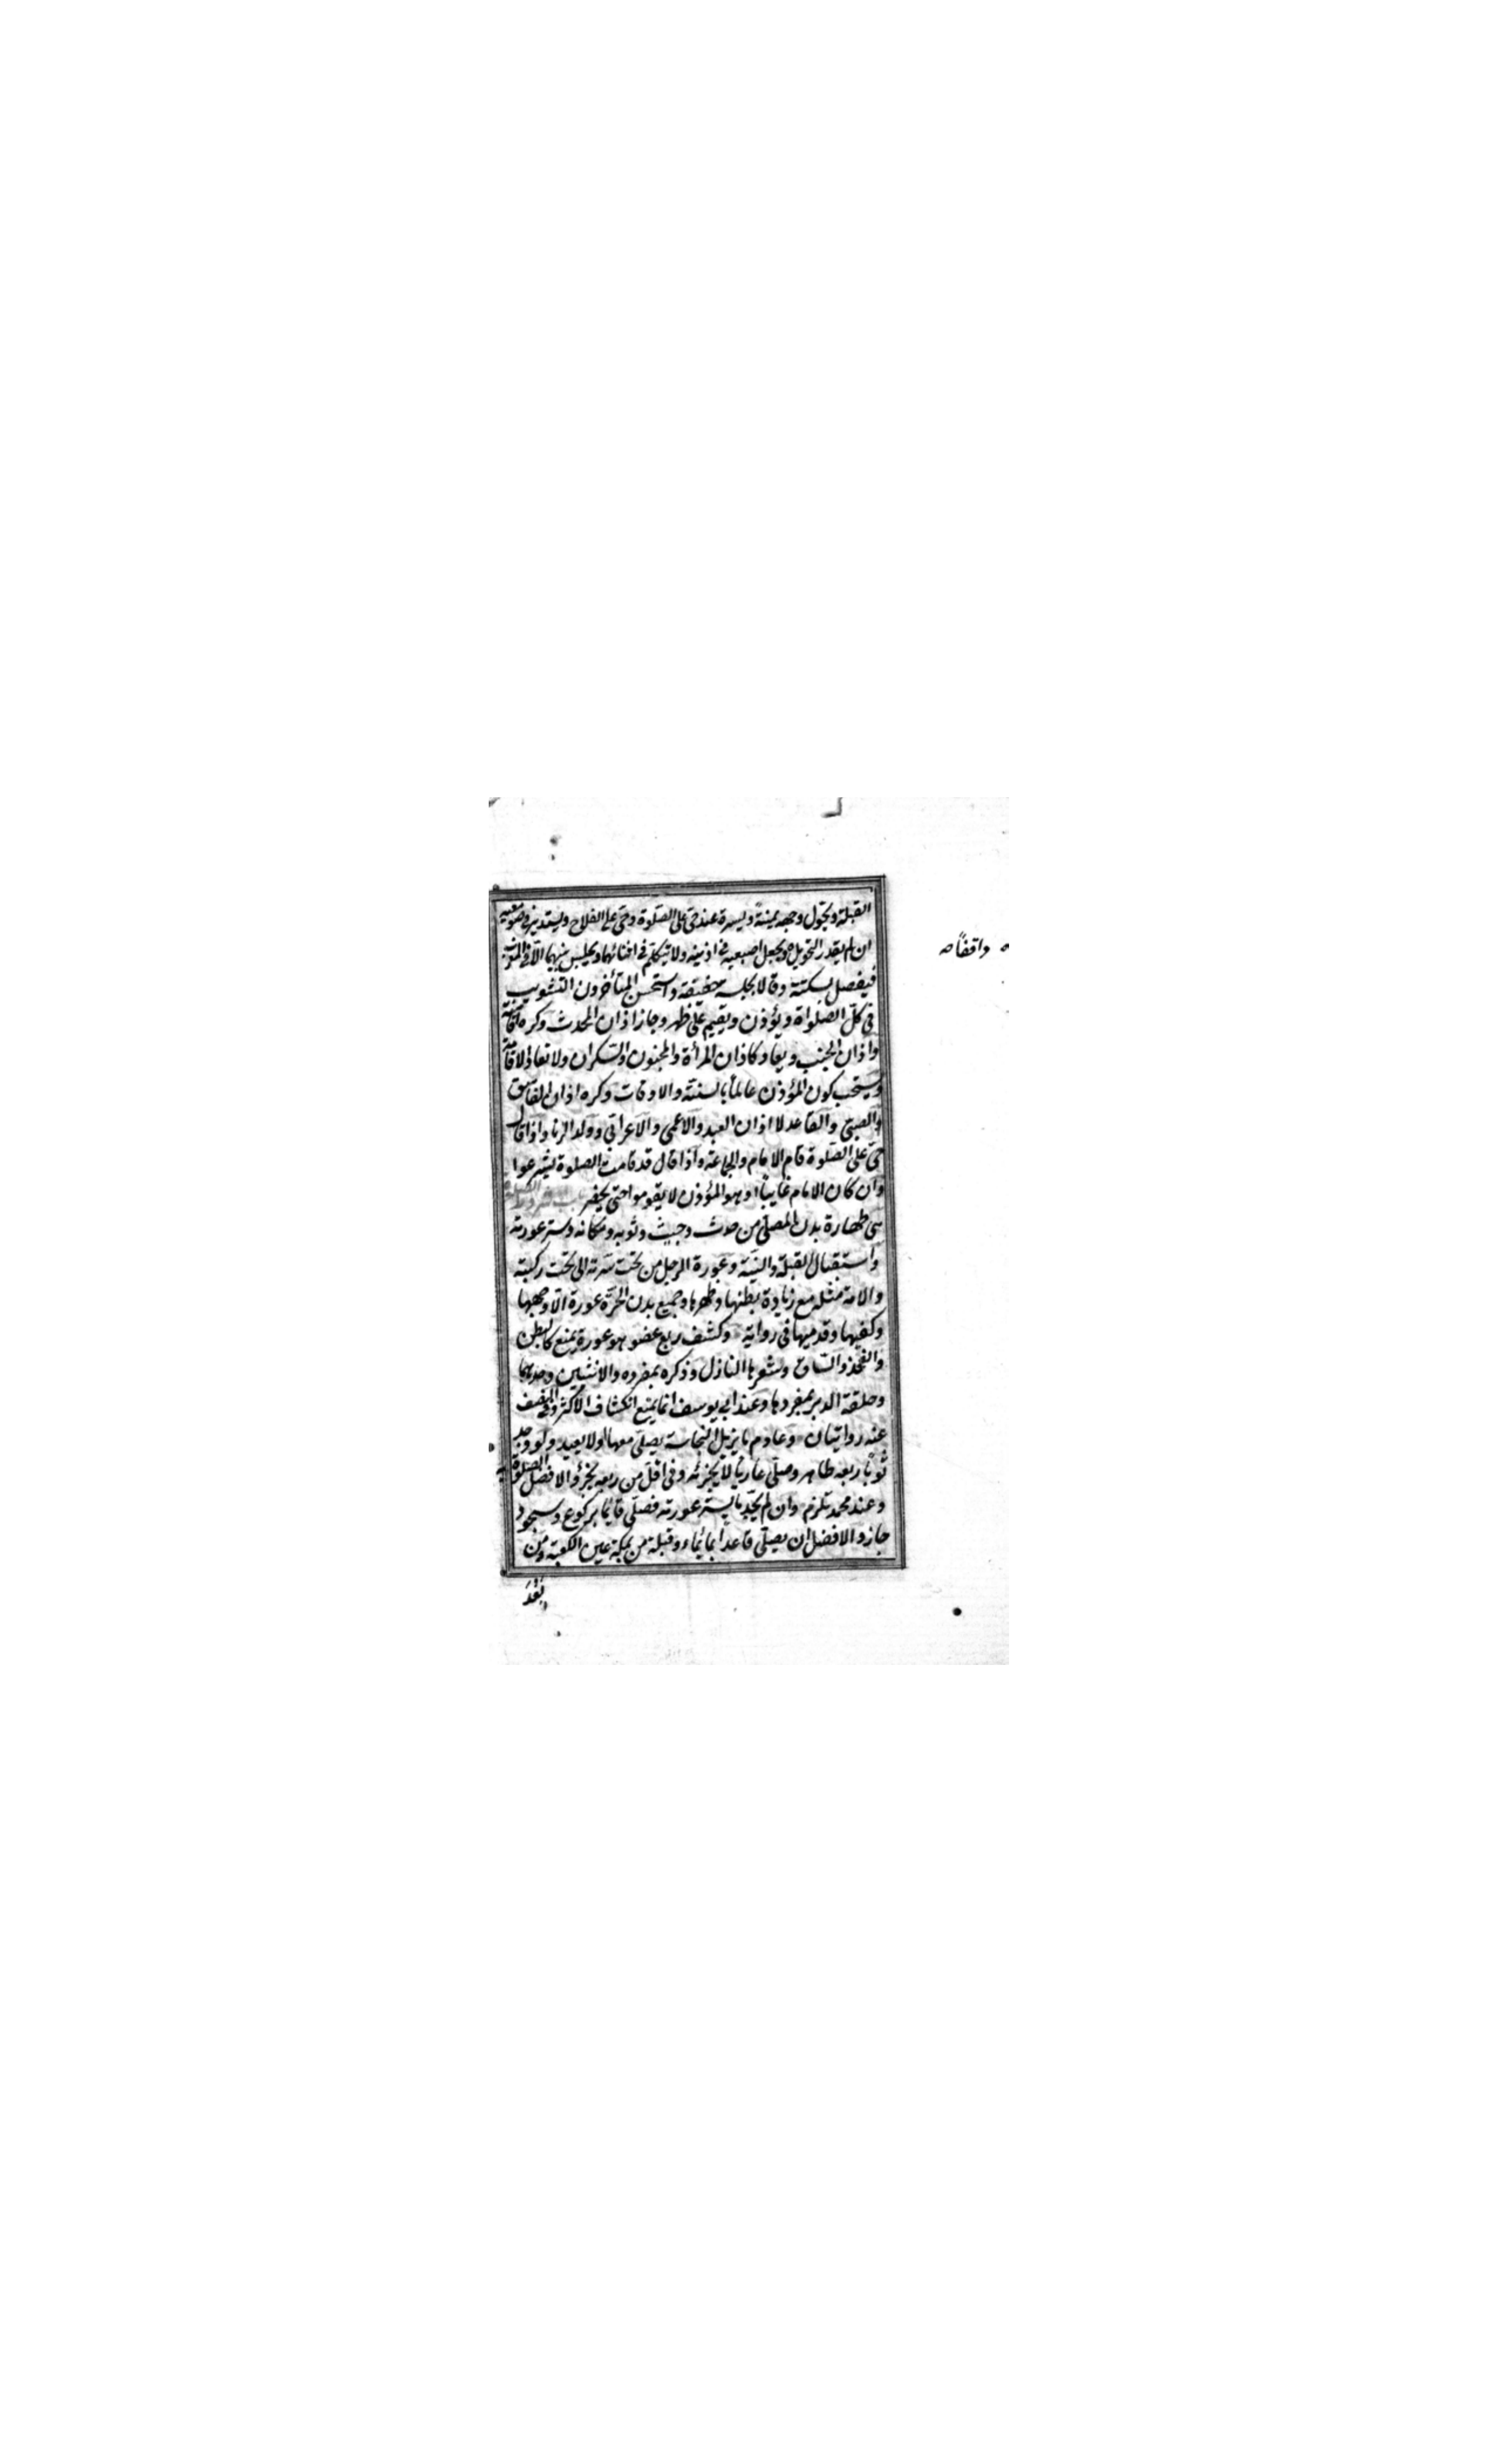 القبلة ويحول وجهه يمنة ويسرة عند حى على الصلوة وحى على الفلاح ويستدير فى صومعته
ان لم يقدر التحويل ويجعل اصبعيه فى اذنيه ولا يتكلم فى اثنائهما ويجلس بينهما الا فى المغرب
واقفا صه
فيفصل بسكتة وقالا بجلسة خفيفة واستحسن المتأخرون التثويب
فى كل الصلواة ويؤذن ويقيم على ظهر وجاز اذان المحدث وكره اقامته
واذان الجنب ويعاد كاذان المرأة والمجنون والسكران ولا تعاد الاقامة
ويستحب كون المؤذن عالما بالسنة والاوقات وكره اذان الفاسق
والصبى والقاعد لا اذان العبد والاعمى والاعرابى وولد الزنا واذا قال
حى على الصلوة قام الامام والجماعة واذا قال قد قامت الصلوة يشرعوا
وان كان الامام غايبا او هو المؤذن لا يقوموا حتى يحضر باب شروط الصلوة
هى طهارة بدن المصلى من حدث وخبث وثوبه ومكانه وستر عورته
واستقبال القبلة والنية وعورة الرجل من تحت سرته الى تحت ركبته
والامة مثله مع زيادة بطنها وظهرها وجميع بدن الحرة عورة الا وجهها
وكفيها وقدميها فى رواية وكشف ربع عضو هو عورة يمنع كالبطن
والفخذ والساق وشعرها النازل وذكره بمفرده والانثيين وحدهما
وحلقة الدبر بمفردها وعند ابى يوسف انما يمنع انكشاف الاكثر وفى النصف
عنه روايتان وعادم ما يزيل النجاسة يصلى معها ولا يعيد ولو وجد
ثوبا ربعه طاهر وصلى عاريا لا يجزئه وفى اقل من ربعه يجزؤ والافضل الصلوة به
وعند محمد تلزم وان لم يجد ما يستر عورته فصلى قائما بركوع وسجود
جاز والافضل ان يصلى قاعدا بايماء وقبلة من بمكة عين الكعبة ومن
بعد